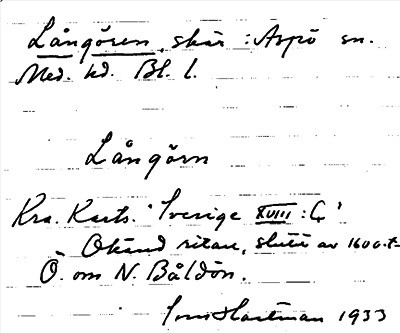 Långören, skär : Aspö sn.
Med. hd. Bl. l.
Långörn
Kra. Karts. Sverige XVIII : 
Okänd ritare, slutet av 1600-t.
Ö. om N. Båldön.
Hartman 1933